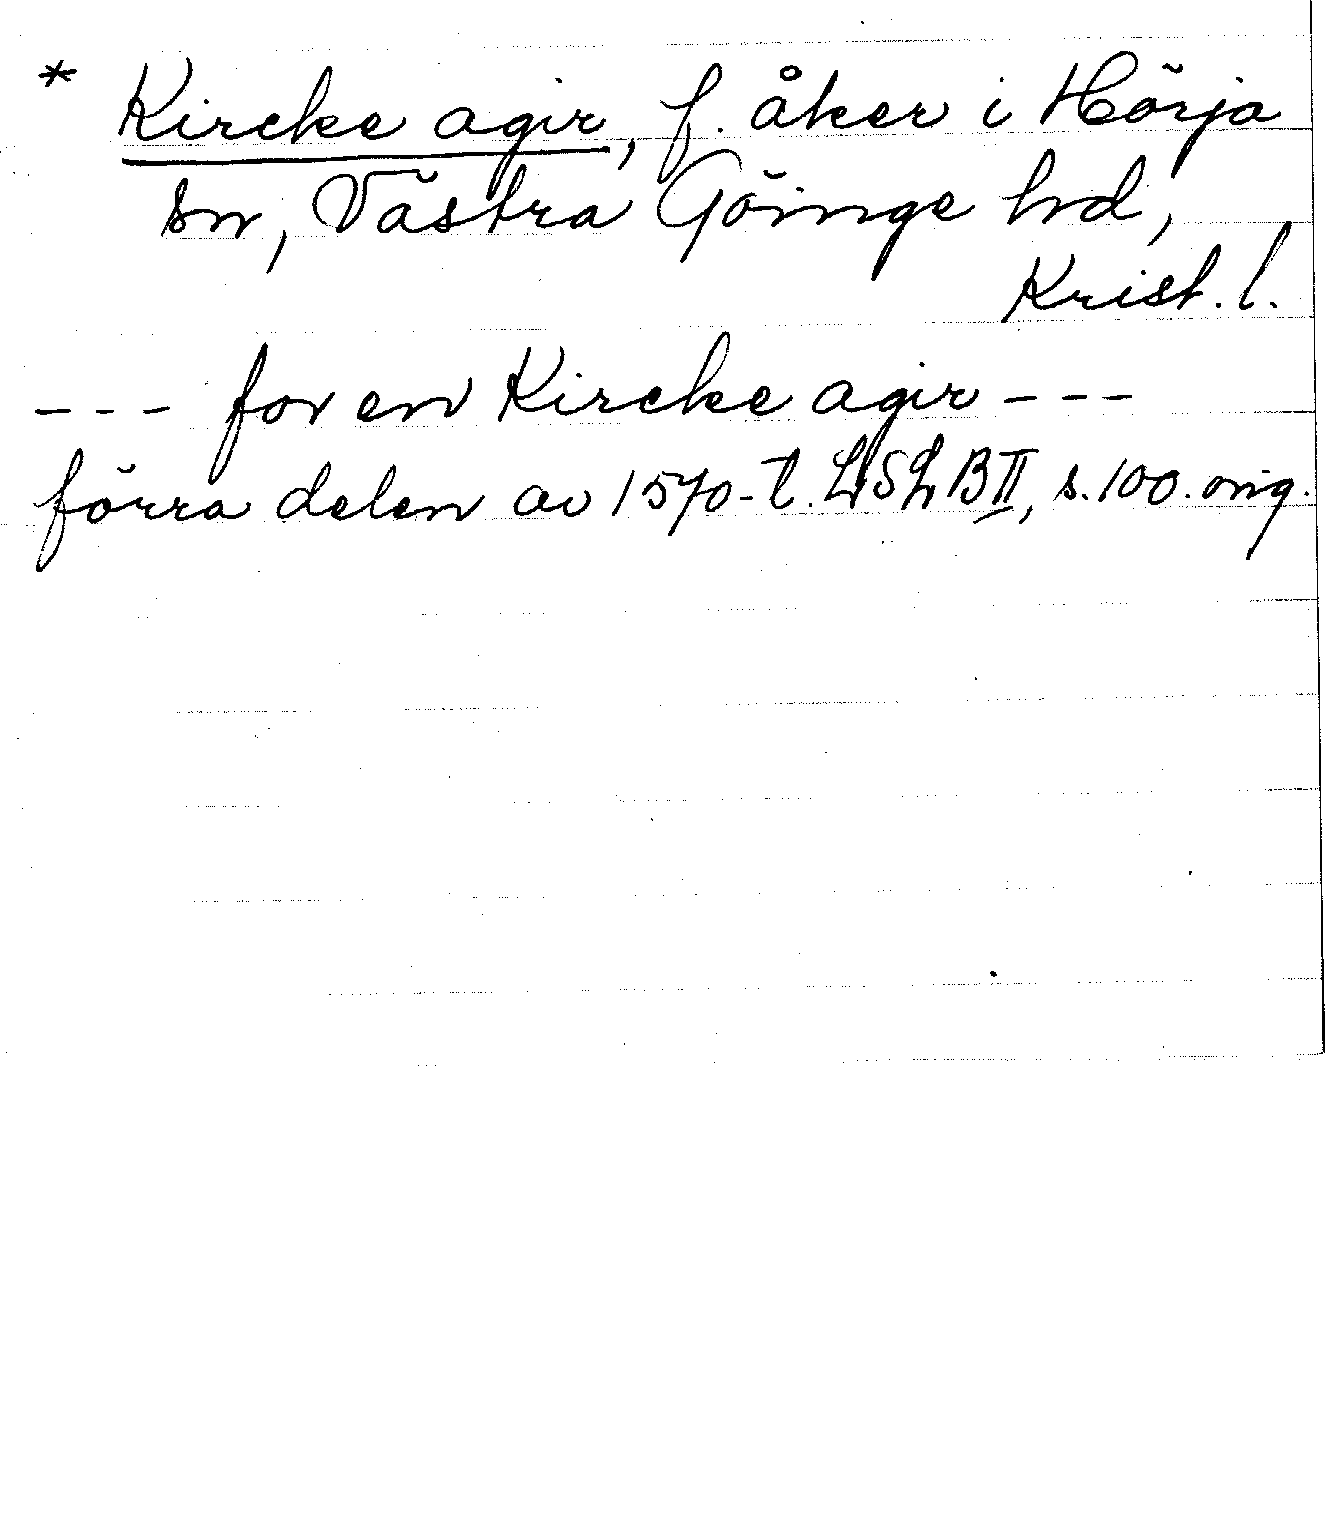 * Kircke agir, f. åker i Hörja
sn, Västra Göinge hd,
Krist. l.
--- for en Kircke agir ---
förra delen av 1570-t. LSL B II, s. 100. orig.